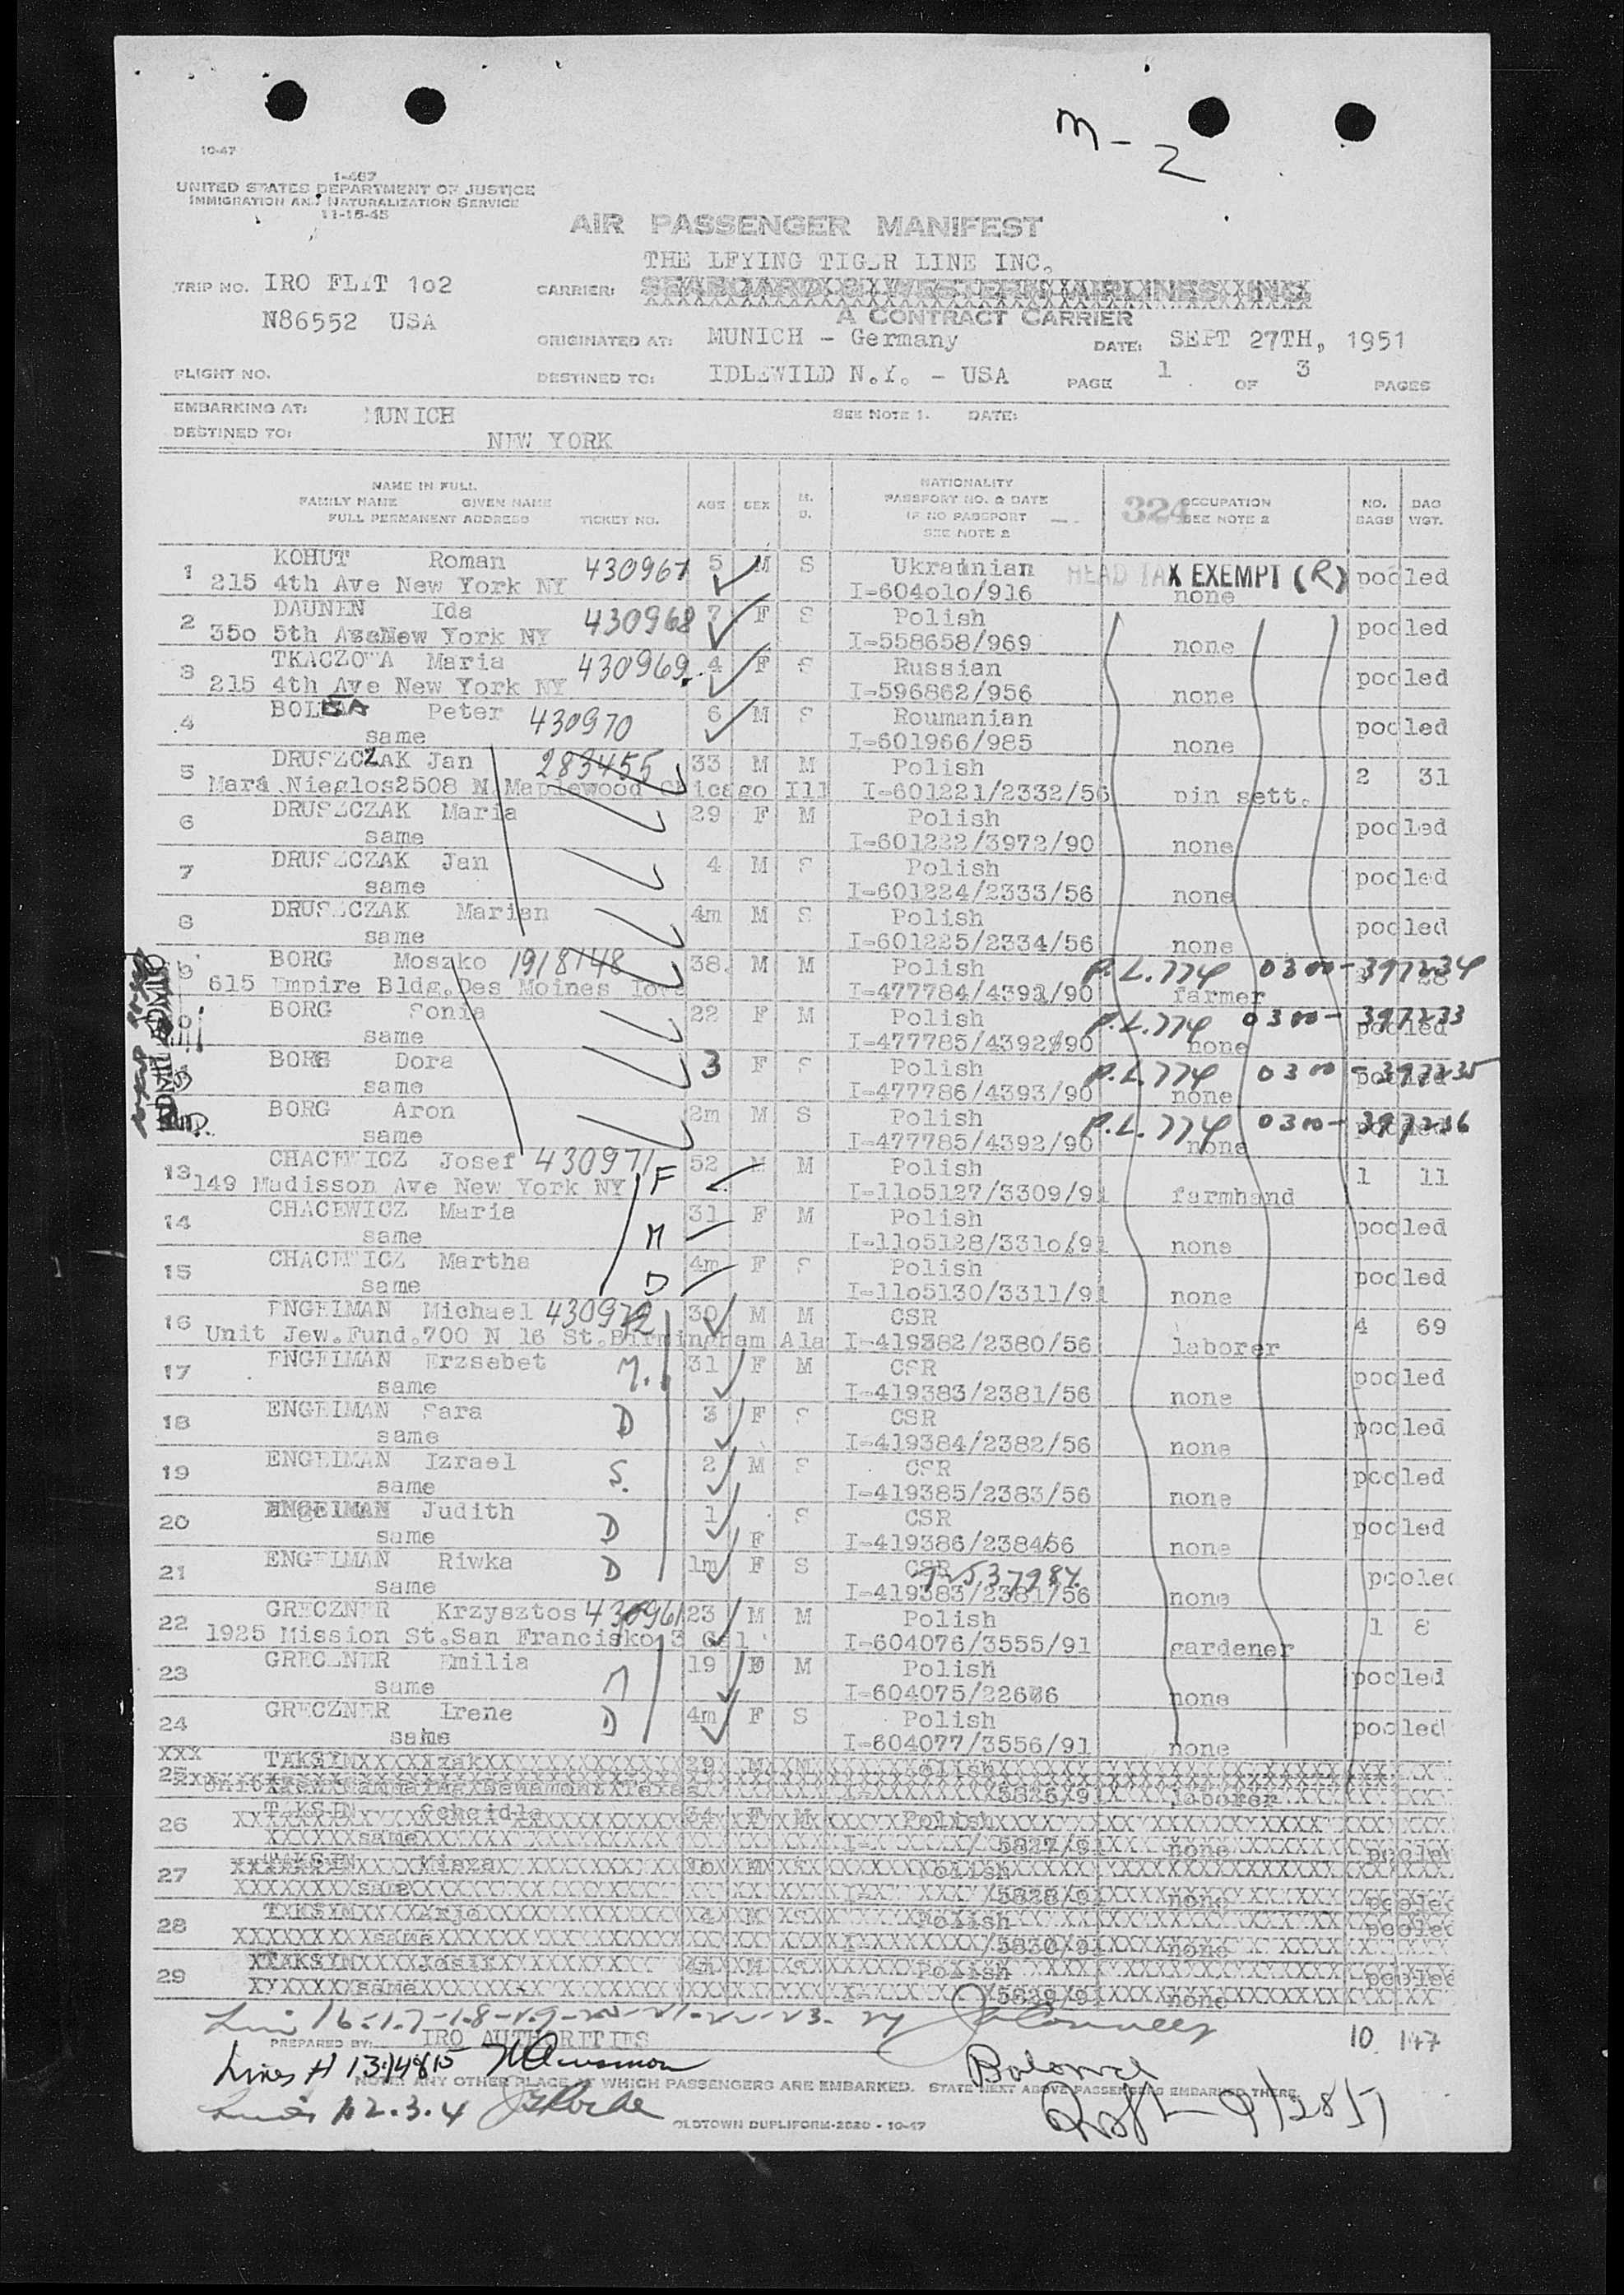 m-2
10-47
1-467
UNITED STATES DEPARTMENT OF JUSTICE
IMMIGRATION AND NATURALIZATION SERVICE
11-15-45
AIR PASSENGER MANIFEST
THE LFYING TIGER LINE INC.
TRIP NO. IRO FLIT 1o2 CARRIER: SEABOARD & WESTERN AIRLINES INC.
N86552 USA A CONTRACT CARRIER
ORIGINATED AT: MUNICH - Germany DATE: SEPT 27TH, 1951
FLIGHT NO. DESTINED TO: IDLEWILD N.Y. - USA PAGE 1 OF 3 PAGES
EMBARKING AT: MUNICH SEE NOTE 1. DATE:
DESTINED TO: NEW YORK
NAME IN FULL
FAMILY NAME GIVEN NAME
FULL PERMANENT ADDRESS TICKET NO. AGE SEX M. S. NATIONALITY PASSPORT NO. & DATE IF NO PASSPORT SEE NOTE 2 324 OCCUPATION SEE NOTE 2 NO. BAGS BAG WGT.
1 KOHUT Roman 430967 5 M S Ukrainian HEAD TAX EXEMPT (R) pooled
215 4th Ave New York NY I-604o1o/916 none
2 DAUNEN Ida 430968 7 F S Polish pooled
35o 5th New York NY I-558658/969 none
3 TKACZOWA Maria 430969 4 F S Russian pooled
215 4th Ave New York NY I-596862/956 none
4 Peter 430970 6 M S Roumanian pooled
same I-601966/985 none
5 DRUSZCZAK Jan 283455 33 M M Polish 2 31
Mara Nieglos2508 N Maplewood Chicago Ill I-601221/2332/56 pin sett.
6 DRUSZCZAK Maria 29 F M Polish pooled
same I-601222/3972/90 none
7 DRUSZCZAK Jan 4 M S Polish pooled
same I-601224/2333/56 none
8 DRUSZCZAK Marian 4m M S Polish pooled
same I-601225/2334/56 none
9 BORG Moszko 1918148 38 M M Polish P.L.774 0300-397234
615 Empire Bldg.Des Moines Iowa I-477784/4391/90 farmer 28
BORG Sonia 22 F M Polish P.L.774 0300-397233 pooled
same I-477785/4392/90 none
BORG Dora 3 F S Polish P.L.774 0300-397235 pooled
same I-477786/4393/90 none
BORG Aron 2m M S Polish P.L.774 0300-397236 pooled
same I-477785/4392/90 none
13 CHACEWICZ Josef 430971 F 52 M M Polish 1 11
149 Madisson Ave New York NY I-11o5127/3309/91 farmhand
14 CHACEWICZ Maria M 31 F M Polish pooled
same I-11o5128/331o/91 none
15 CHACEWICZ Martha D 4m F S Polish pooled
same I-11o5130/3311/91 none
16 ENGELMAN Michael 430972 30 M M CSR 4 69
Unit Jew.Fund.700 N 16 St.Birmingham Ala I-419382/2380/56 laborer
17 ENGELMAN Erzsebet M. 31 F M CSR pooled
same I-419383/2381/56 none
18 ENGELMAN Sara D 3 F S CSR pooled
same I-419384/2382/56 none
19 ENGELMAN Izrael S. 2 M S CSR pooled
same I-419385/2383/56 none
20 ENGELMAN Judith D 1 F S CSR pooled
same I-419386/238456 none
21 ENGELMAN Riwka D 1m F S CSR pooled
same I-419383/2381/56 none
22 GRECZNER Krzysztos 430961 23 M M Polish 1 8
1925 Mission St.San Francisko 3 Cal I-604076/3555/91 gardener
23 GRECZNER Emilia M 19 F M Polish pooled
same I-604075/22666 none
24 GRECZNER Irene D 4m F S Polish pooled
same I-604077/3556/91 none
XXX TAKSYN 29 M M Polish
25 5826/91 laborer
26 TAKSYN Scheidla 34 F M Polish
same 5827/91 none pooled
27 TAKSYN 1o M S Polish
same 5828/91 none pooled
28 TAKSYN 4 M S Polish pooled
same 5830/91 none
29 TAKSYN Josif 4m M S Polish pooled
same 5829/91 none
16-17-18-19-20-21-22-23. 24 10 147
PREPARED BY: IRO AUTHORITIES
Lines # 13:14&15
NOTE: ANY OTHER PLACE AT WHICH PASSENGERS ARE EMBARKED. STATE NEXT ABOVE PASSENGERS EMBARKED THERE.
Lines 1.2.3.4 9/28/51
OLDTOWN DUPLIFORM-2620 - 10-47